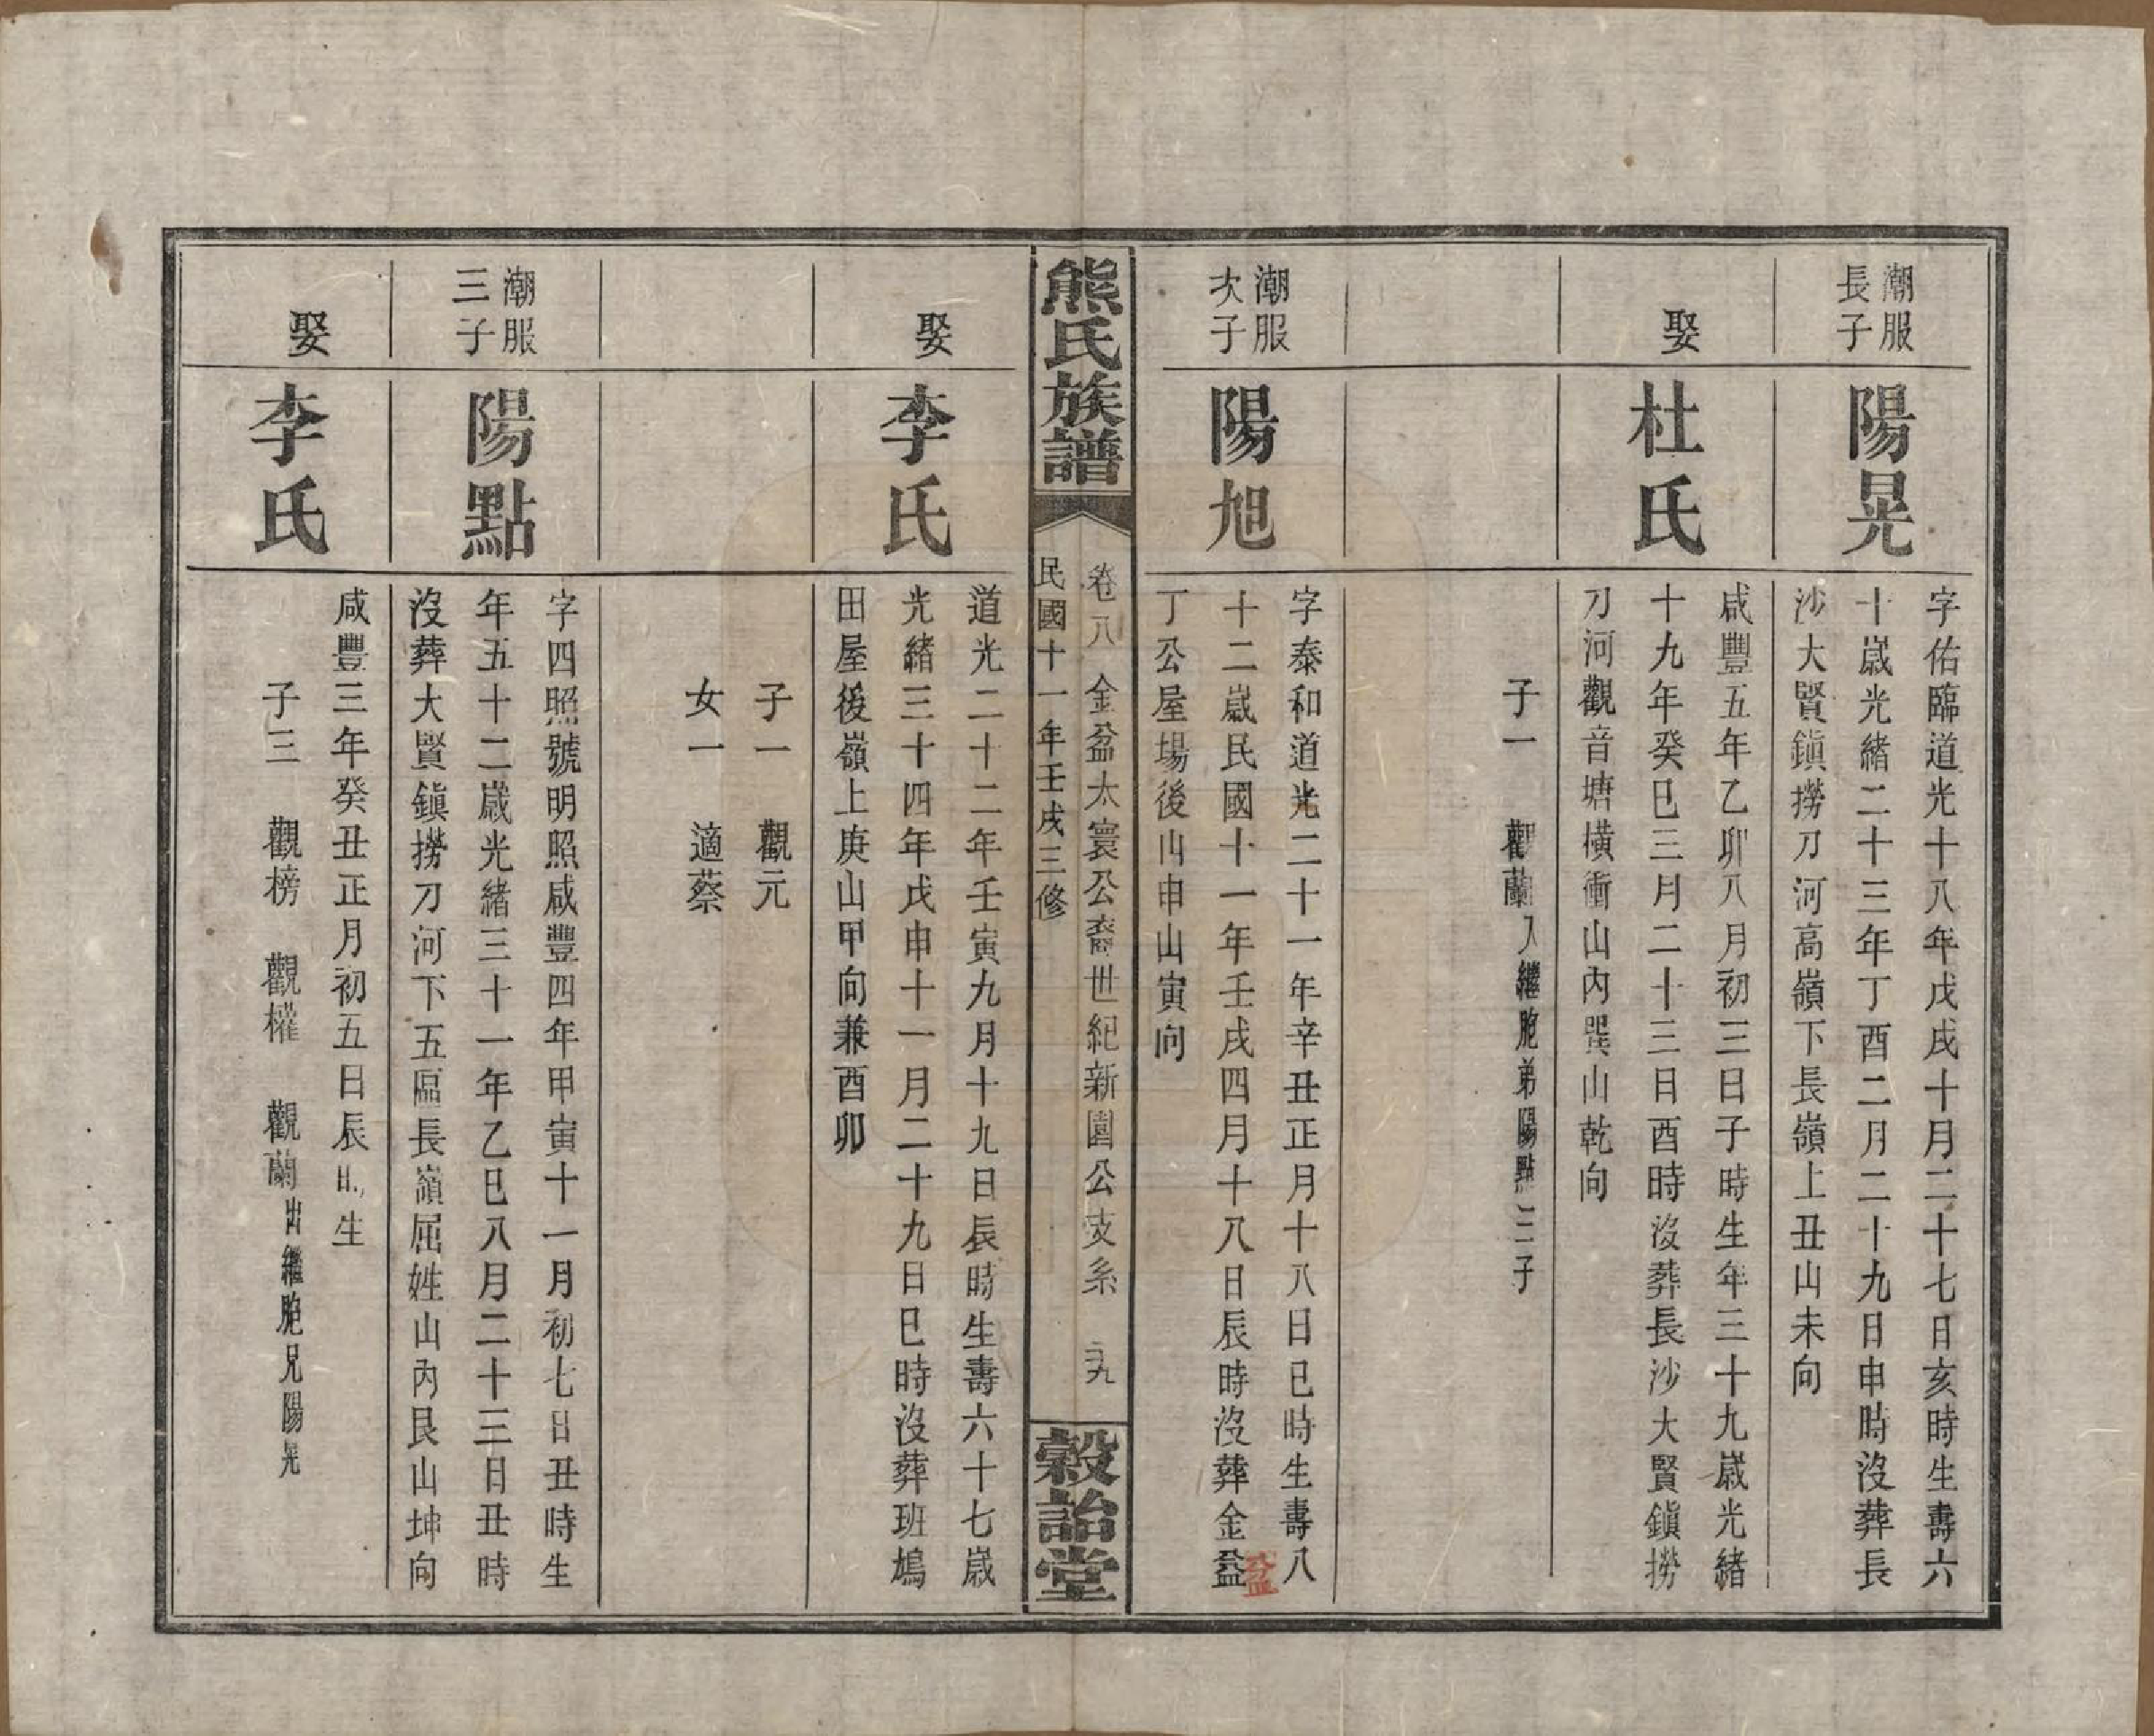 潮服
長子
陽晃
字佑臨道光十八年戊戌十月二十七日亥時生壽六
十歲光緒二十三年丁酉二月二十九日申時沒葬長
沙大賢鎮撈刀河高嶺下長嶺上丑山未向
娶
杜氏
咸豐五年乙卯八月初三日子時生年三十九歲光緒
十九年癸巳三月二十三日酉時沒葬長沙大賢鎮撈
刀河觀音塘橫衝山內巽山乾向
子一 觀蘭入繼胞弟陽點三子
潮服
次子
陽旭
字泰和道光二十一年辛丑正月十八日巳時生壽八
十二歲民國十一年壬戌四月十八日辰時沒葬金盆
盆
丁公屋場後山申山寅向
熊氏族譜
卷八 金盆太寰公裔世紀新園公支系 三十九
民國十一年壬戌三修
穀詒堂
娶
李氏
道光二十二年壬寅九月十九日辰時生壽六十七歲
光緒三十四年戊申十一月二十九日巳時沒葬班鳩
田屋後嶺上庚山甲向兼酉卯
子一 觀元
女一 適蔡
潮服
三子
陽點
字四照號明照咸豐四年甲寅十一月初七日丑時生
年五十二歲光緒三十一年乙巳八月二十三日丑時
沒葬大賢鎮撈刀河下五區長嶺屈姓山內艮山坤向
娶
李氏
咸豐三年癸丑正月初五日辰時生
子三 觀榜 觀權 觀蘭出繼胞兄陽晃